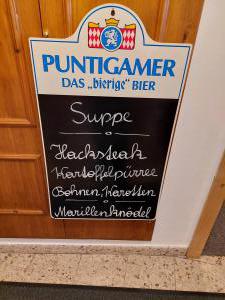 PUNTIGAMER
DAS „bierige" BIER
Suppe
Hacksteak
Kartoffelpürree
Bohnen, Karotten
Marillenknödel